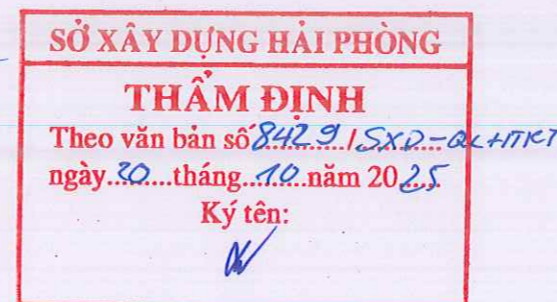 SỞ XÂY DỰNG HẢI PHÒNG
THẨM ĐỊNH
Theo văn bản số 8429/SXD-QLHTKT
ngày 20 tháng 10 năm 2025
Ký tên: